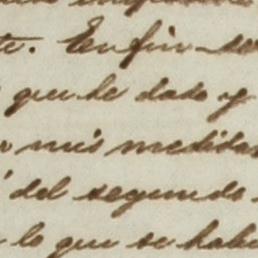 te. En fin se
que he dado y
mis medidas
del segundo
lo que se habi